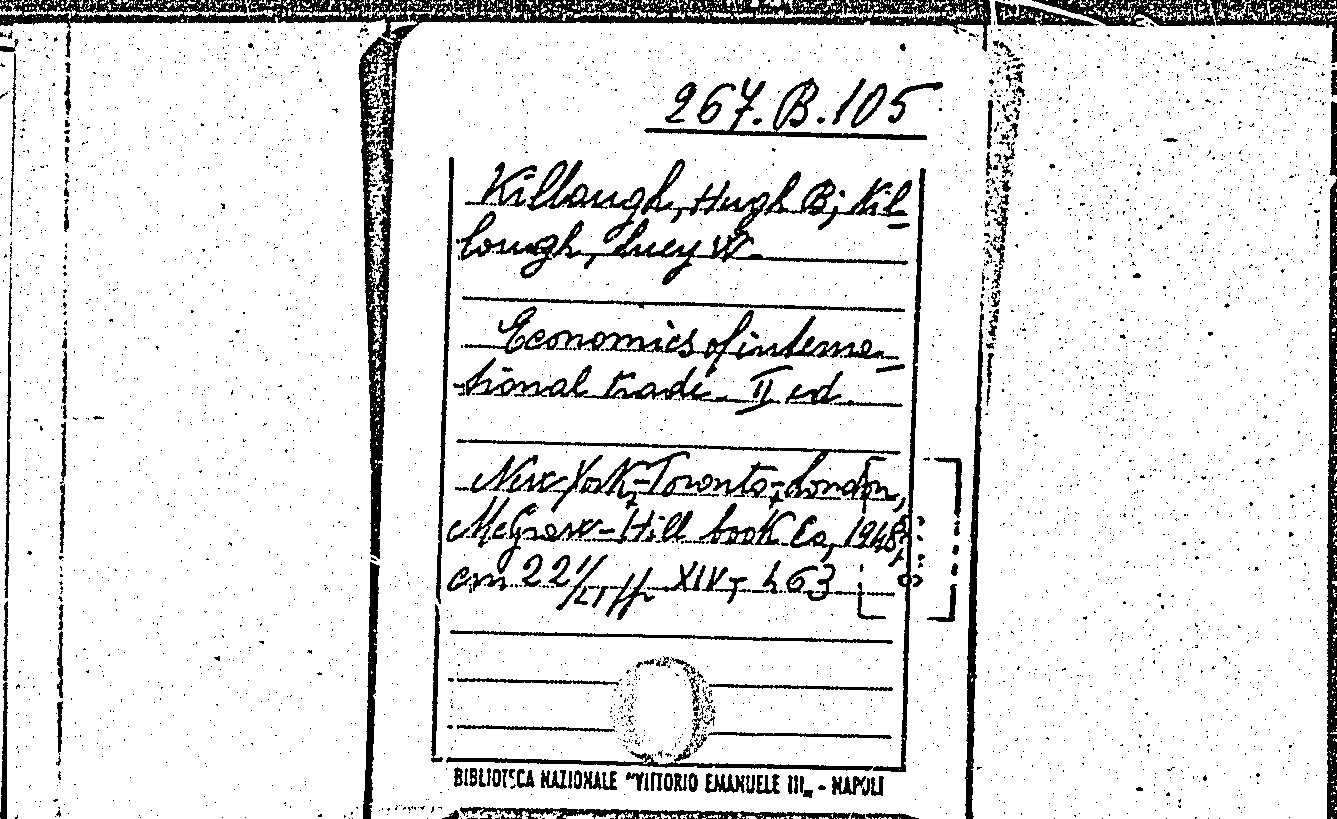 267.B.105
Killough, Hugh B; Kil-
lough, Lucy W.
Economics of interna-
tional trade. II ed
New York-Toronto-London,
McGraw-Hill book Co, 1948,
cm 22 XIV, 463
BIBLIOTECA NAZIONALE "VITTORIO EMANUELE III„ - NAPOLI